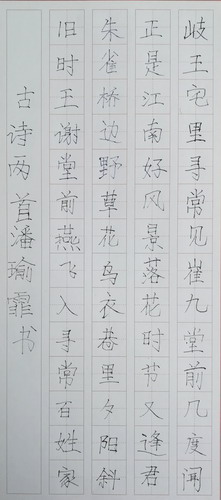 岐王宅里寻常见崔九堂前几度闻
正是江南好风景落花时节又逢君
朱雀桥边野草花乌衣巷里夕阳斜
旧时王谢堂前燕飞入寻常百姓家
古诗两首潘瑜霏书